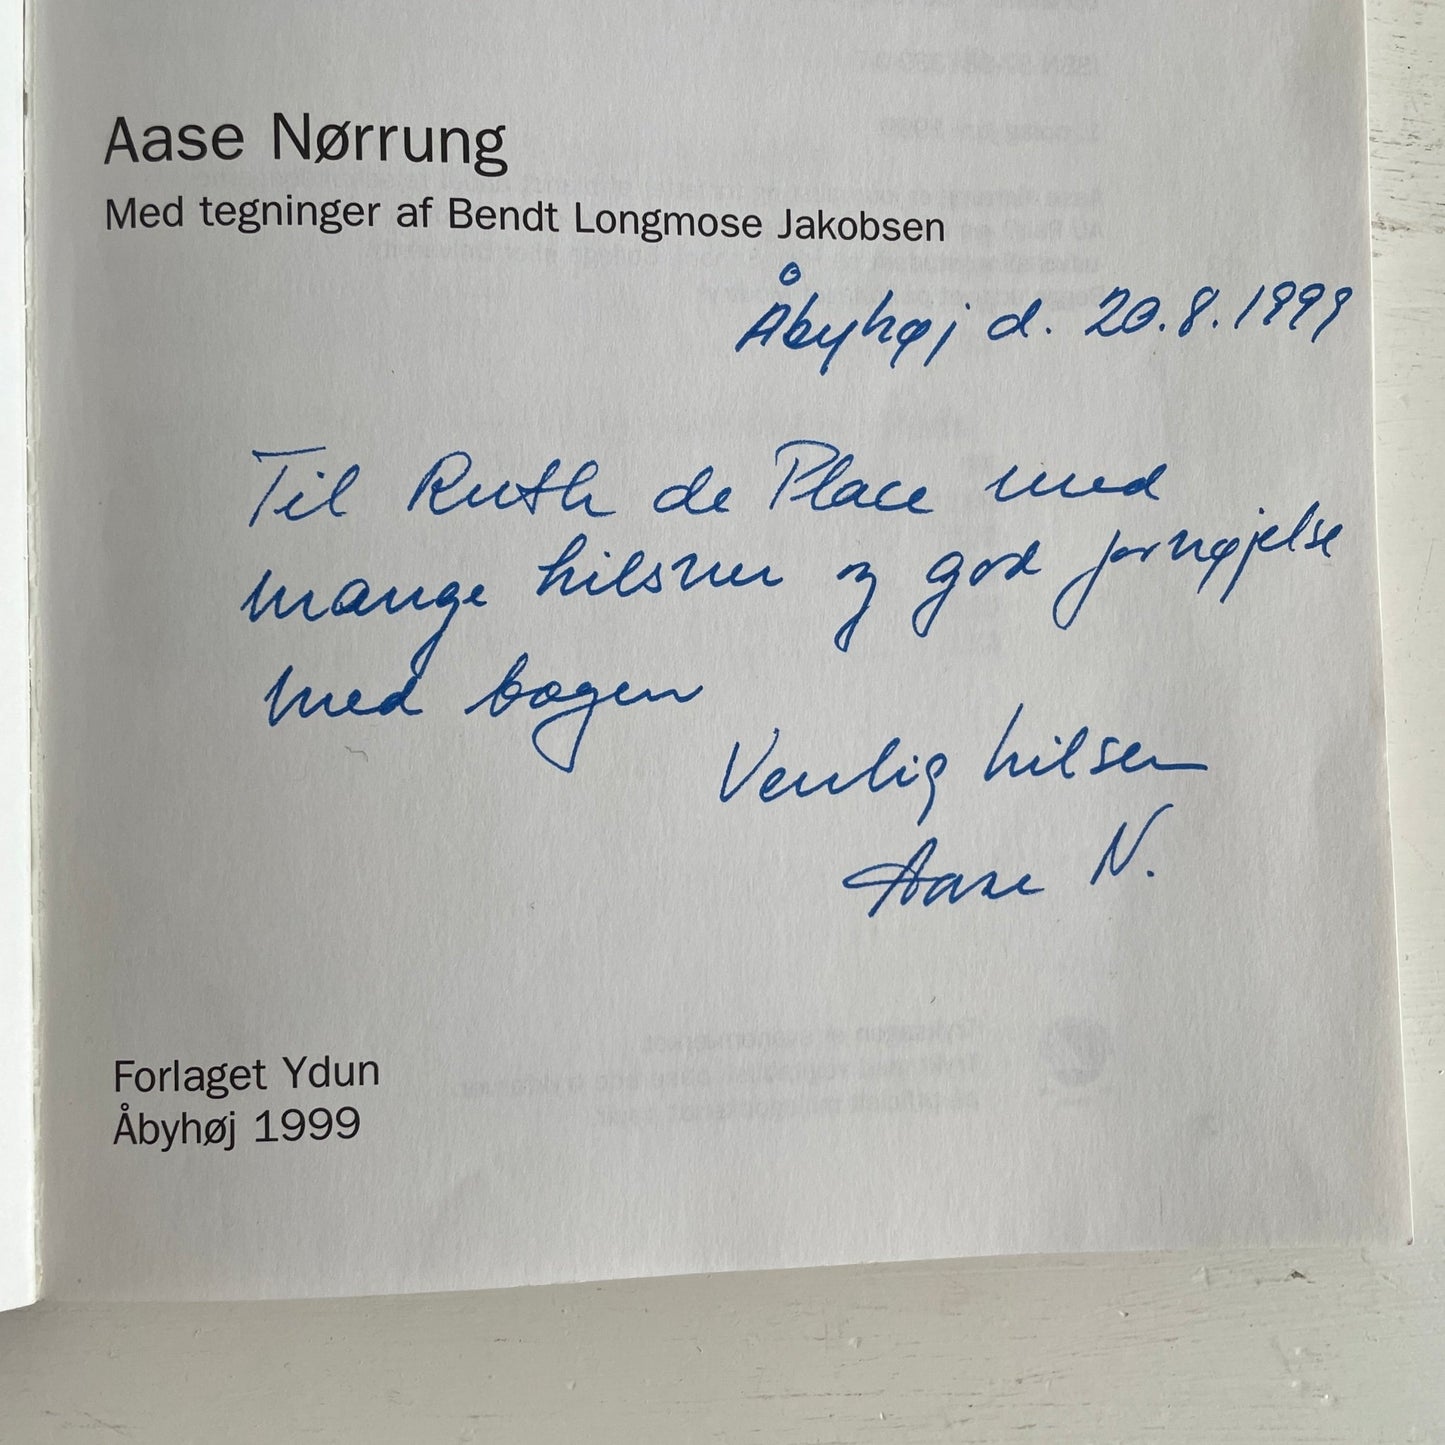 Aase Nørrung
Med tegninger af Bendt Longmose Jakobsen
Åbyhøj d. 20.8.1999
Til Ruth de Place med
mange hilsner og god fornøjelse
med bogen
Venlig hilsen
Aase N.
Forlaget Ydun
Åbyhøj 1999